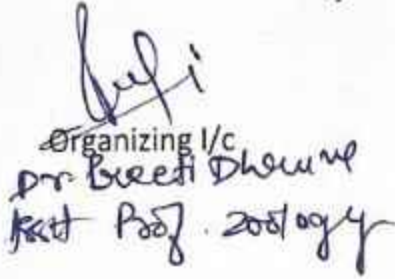 Organizing I/c
Dr. Preeti
Asst Prof. Zoology